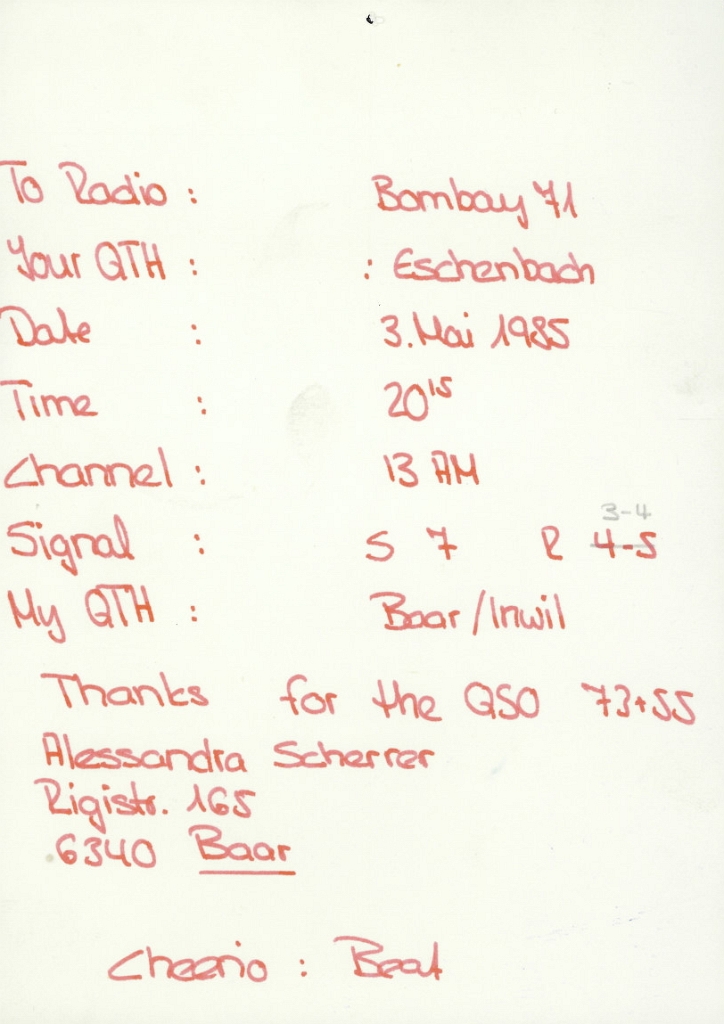 To Radio : Bombay 71
Your QTH : : Eschenbach
Date : 3. Mai 1985
Time : 20¹⁵
Channel : 13 AM
3-4
Signal : S 7 R 4-5
My QTH : Baar/Inwil
Thanks for the QSO 73+55
Alessandra Scherrer
Rigistr. 165
6340 Baar
Cheerio : Beat